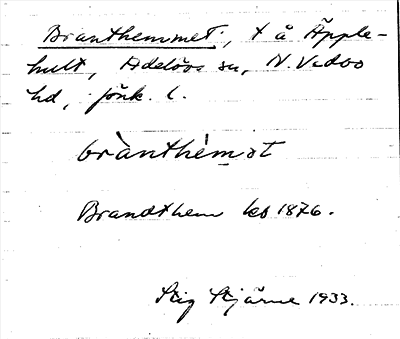 Branthemmet, t å Äpple-
hult, Adelövs sn, N. Vedbo
hd, Jönk. l.
brànthèmət
Brandthem ks 1876.
Stig Stjärne 1933.